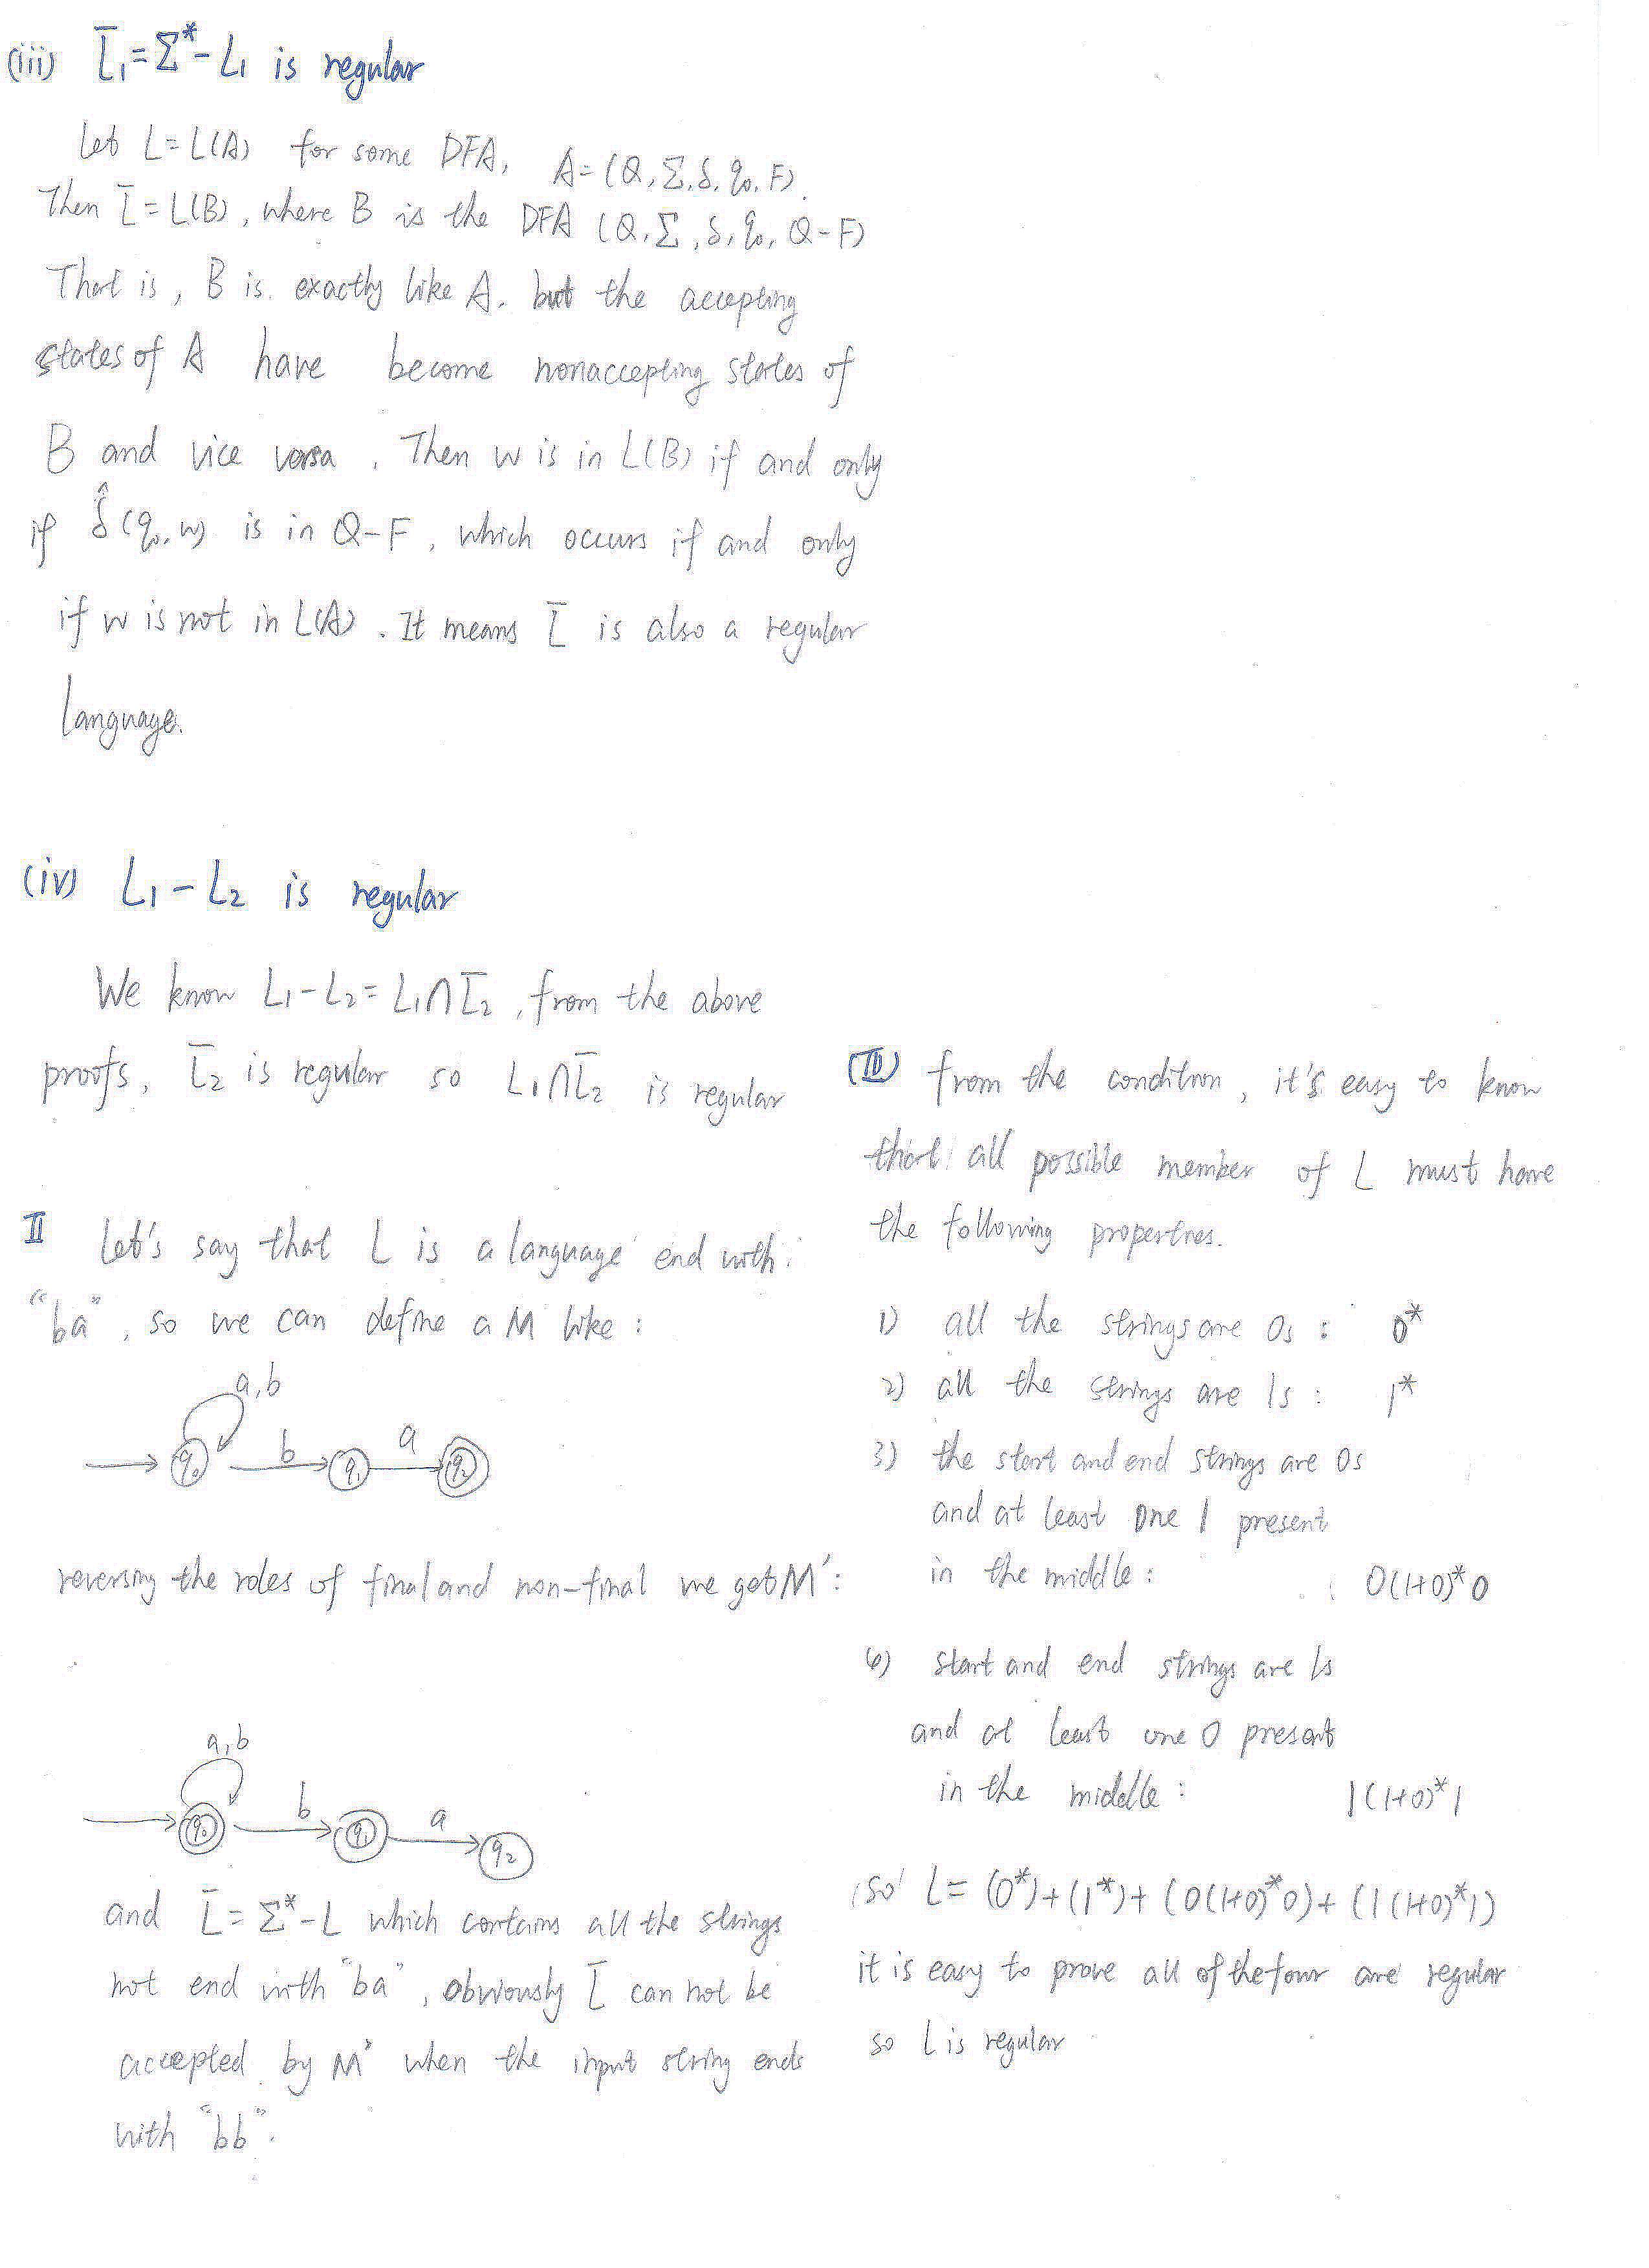 (iii) L̄₁=Σ*-L₁ is regular
Let L=L(A) for some DFA, A=(Q,Σ,δ,q₀,F).
Then L̄=L(B), where B is the DFA (Q,Σ,δ,q₀,Q-F)
That is, B is exactly like A, but the accepting
states of A have become nonaccepting states of
B and vice versa. Then w is in L(B) if and only
if δ̂(q₀,w) is in Q-F, which occurs if and only
if w is not in L(A). It means L̄ is also a regular
language.
(iv) L₁-L₂ is regular
We know L₁-L₂=L₁∩L̄₂, from the above
proofs, L̄₂ is regular so L₁∩L̄₂ is regular
II Let's say that L is a language end with
"ba", so we can define a M like:
a,b
q₀ b q₁ a q₂
reversing the roles of final and non-final we got M':
a,b
q₀ b q₁ a q₂
and L̄=Σ*-L which contains all the strings
not end with "ba", obviously L̄ can not be
accepted by M' when the input string ends
with "bb".
(III) from the condition, it's easy to know
that all possible member of L must have
the following properties.
1) all the strings are 0s: 0*
2) all the strings are 1s: 1*
3) the start and end strings are 0s
and at least one 1 present
in the middle: 0(1+0)*0
4) start and end strings are 1s
and at least one 0 present
in the middle: 1(1+0)*1
so L= (0*)+(1*)+(0(1+0)*0)+(1(1+0)*1)
it is easy to prove all of the four are regular
so L is regular